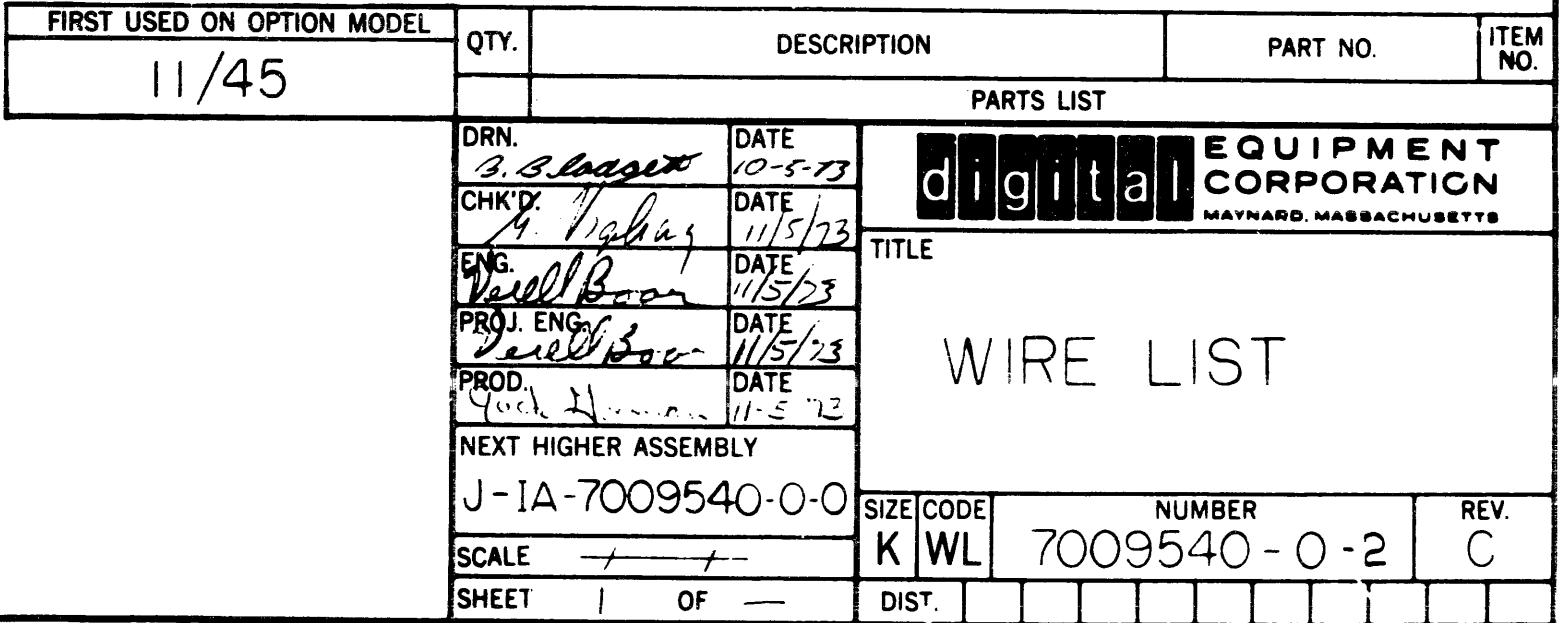 FIRST USED ON OPTION MODEL
11/45
QTY.
DESCRIPTION
PART NO.
ITEM NO.
PARTS LIST
DRN.
B. Blodgett
DATE
10-5-73
CHK'D.
DATE
11/5/73
ENG.
Verell Boaen
DATE
11/5/73
PROJ. ENG.
Verell
DATE
11/5/73
PROD.
Jack
DATE
11-5 73
NEXT HIGHER ASSEMBLY
J-IA-7009540-0-0
SCALE
SHEET 1 OF —
digital EQUIPMENT CORPORATION
MAYNARD, MASSACHUSETTS
TITLE
WIRE LIST
SIZE
K
CODE
WL
NUMBER
7009540-0-2
REV.
C
DIST.